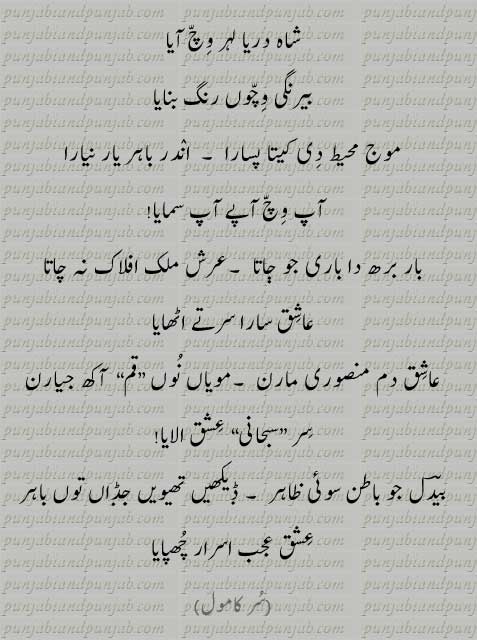 شاہ دریا لہر وِچّ آیا
بیرنگی وِچّوں رنگ بنایا
موج محیط دِی کیتا پسارا ۔ انْدر باہر یار نیارا
آپ وِچّ آپے آپ سمایا!
بار برھ دا باری جو چاتا ۔عرش ملک افلاک نہ چاتا
عاشِق سارا سرتے اٹھایا
عاشِق دم منصوری مارن ۔مویاں نُوں ”قم“ آکھ جیارن
سِر ”سبحانی“ عِشق الایا!
بیدؔل جو باطن سوئی ظاہر ۔ ڈیکھیں تھیویں جڈاں توں باہر
عِشق عجب اسرار چُھپایا
(سُر کامول)